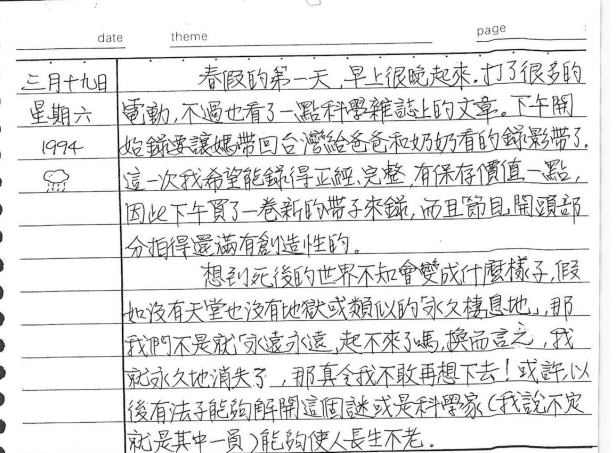 date theme page
三月十九日 春假的第一天，早上很晚起來。打了很多的
星期六 電動，不過也看了一點科學雜誌上的文章。下午開
1994 始錄要讓媽帶回台灣給爸爸和奶奶看的錄影帶了。
這一次我希望能錄得正經、完整，有保存價值一點，
因此下午買了一卷新的帶子來錄，而且節目開頭部
分拍得還滿有創造性的。
想到死後的世界不知會變成什麼樣子，假
如沒有天堂也沒有地獄或類似的「永久棲息地」，那
我們不是就「永遠永遠」起不來了嗎，換而言之，我
就永久地消失了，那真令我不敢再想下去！或許，以
後有法子能夠解開這個謎或是科學家（我說不定
就是其中一員）能夠使人長生不老。